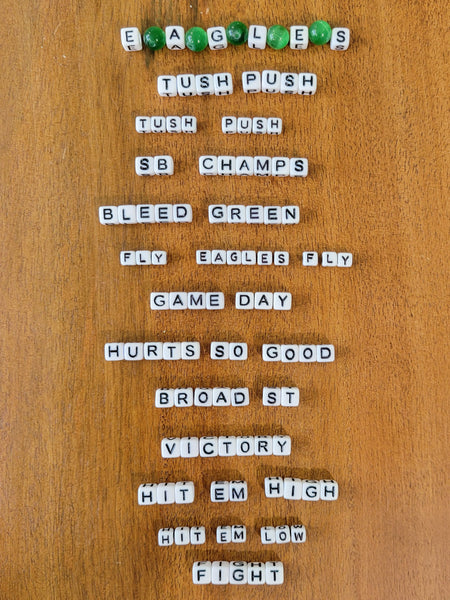 EAGLES
TUSH PUSH
TUSH PUSH
SB CHAMPS
BLEED GREEN
FLY EAGLES FLY
GAME DAY
HURTS SO GOOD
BROAD ST
VICTORY
HIT EM HIGH
HIT EM LOW
FIGHT